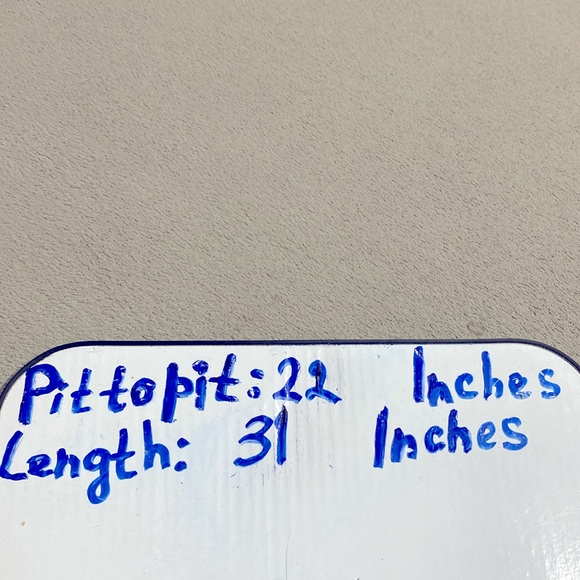 Pit to pit: 22 Inches
Length: 31 Inches